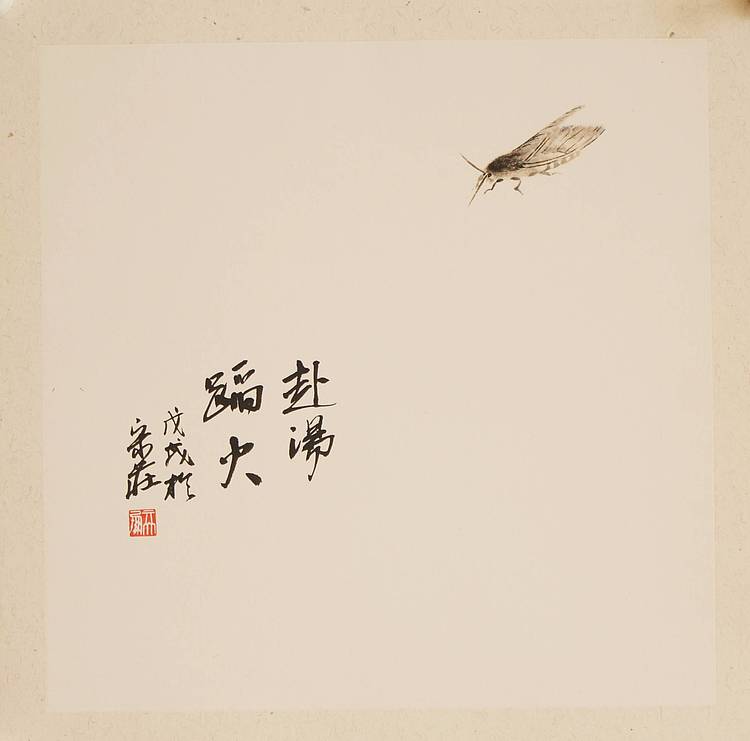 赴湯
蹈火
戊戌於
宋莊